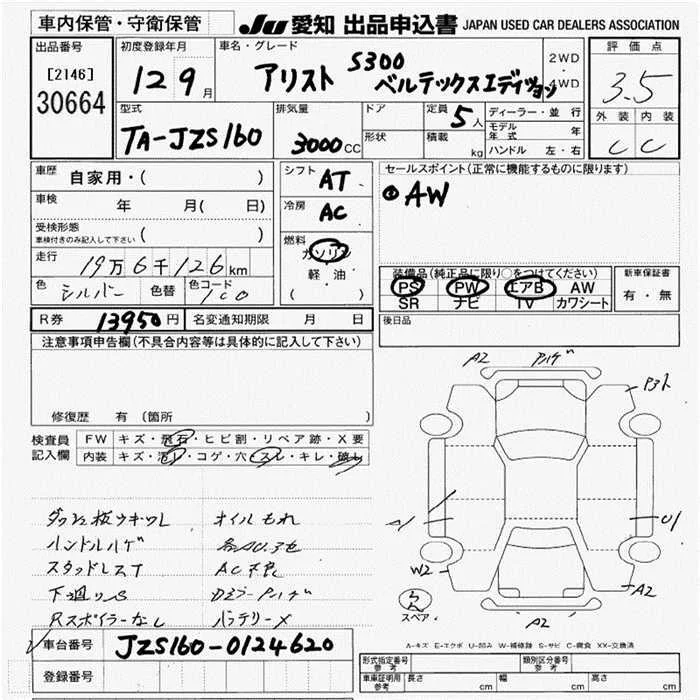 車内保管・守衛保管
JU 愛知 出品申込書 JAPAN USED CAR DEALERS ASSOCIATION
出品番号
[2146]
30664
初度登録年月
12 9 月
車名・グレード
アリスト S300
ベルテックスエディション
2WD
・
4WD
評価点
3.5
外装 内装
C C
型式
TA-JZS160
排気量
3000 CC
ドア
形状
定員 5 人
積載 kg
ディーラー・並行
モデル年式 年
ハンドル 左・右
車歴 自家用・( )
車検 年 月( 日)
受検形態
車検付きのみ記入して下さい ( )
走行 19万6千126 km
色 シルバー 色替 色コード 1C0
シフト AT
冷房 AC
燃料
ガソリン
・
軽油
( )
セールスポイント(正常に機能するものに限ります)
① AW
装備品(純正品に限り○をつけてください)
PS PW エアB AW
SR ナビ TV カワシート
新車保証書
有・無
R券 13950円 名変通知期限 月 日
後日品
注意事項申告欄(不具合内容等は具体的に記入して下さい)
修復歴 有 (箇所
検査員
記入欄
FW キズ・飛石・ヒビ割・リペア跡・X要
内装 キズ・汚れ・コゲ・穴・スレ・キレ・破れ
A2 Pハゲ
Pヨト
A1
U1
W2
A2
A2
スペア
ダッシュ板ウキワレ オイルもれ
ハンドルハゲ
スタッドレスT AC不良
下廻りS DミラーPハゲ
Rスポイラーなし バッテリーX
A-キズ E-エクボ U-凹み W-補修跡 S-サビ C-腐食 XX-交換済
車台番号 JZS160-0124620
登録番号
形式指定番号
参考
類別区分番号
参考
車庫証明用
参考
長さ cm 幅 cm 高さ cm